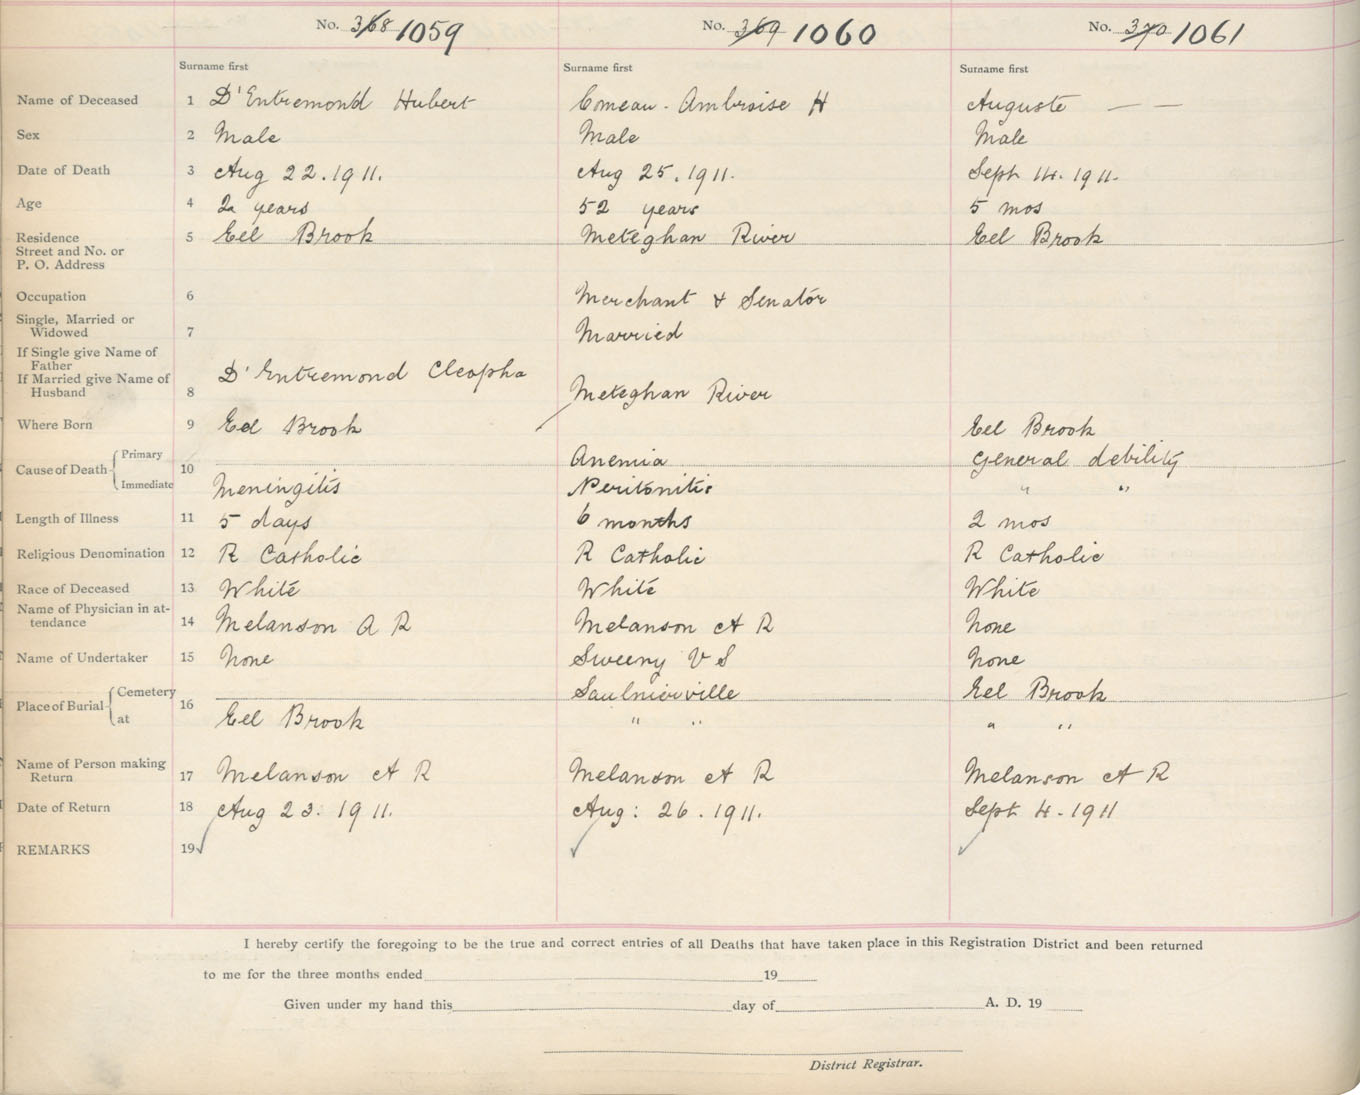 No. 368 1059 No. 369 1060 No. 370 1061
Surname first Surname first Surname first
Name of Deceased 1 D'Entremond Hubert Comeau - Ambroise H Auguste — —
Sex 2 Male Male Male
Date of Death 3 Aug 22. 1911. Aug 25. 1911. Sept 14. 1911.
Age 4 2 years 52 years 5 mos
Residence 5 Eel Brook Meteghan River Eel Brook
Street and No. or
P. O. Address
Occupation 6 Merchant & Senator
Single, Married or
Widowed 7 Married
If Single give Name of
Father
If Married give Name of D'Entremond Cleopha
Husband 8 Meteghan River
Where Born 9 Eel Brook Eel Brook
Cause of Death Primary 10 Anemia General debility
Immediate Meningitis Peritonitis " "
Length of Illness 11 5 days 6 months 2 mos
Religious Denomination 12 R Catholic R Catholic R Catholic
Race of Deceased 13 White White White
Name of Physician in at-
tendance 14 Melanson A R Melanson A R None
Name of Undertaker 15 None Sweeny V S None
Place of Burial Cemetery 16 Saulnierville Eel Brook
at Eel Brook " " " "
Name of Person making
Return 17 Melanson A R Melanson A R Melanson A R
Date of Return 18 Aug 23. 1911. Aug: 26. 1911. Sept 4. 1911
REMARKS 19
I hereby certify the foregoing to be the true and correct entries of all Deaths that have taken place in this Registration District and been returned
to me for the three months ended 19
Given under my hand this day of A. D. 19
District Registrar.